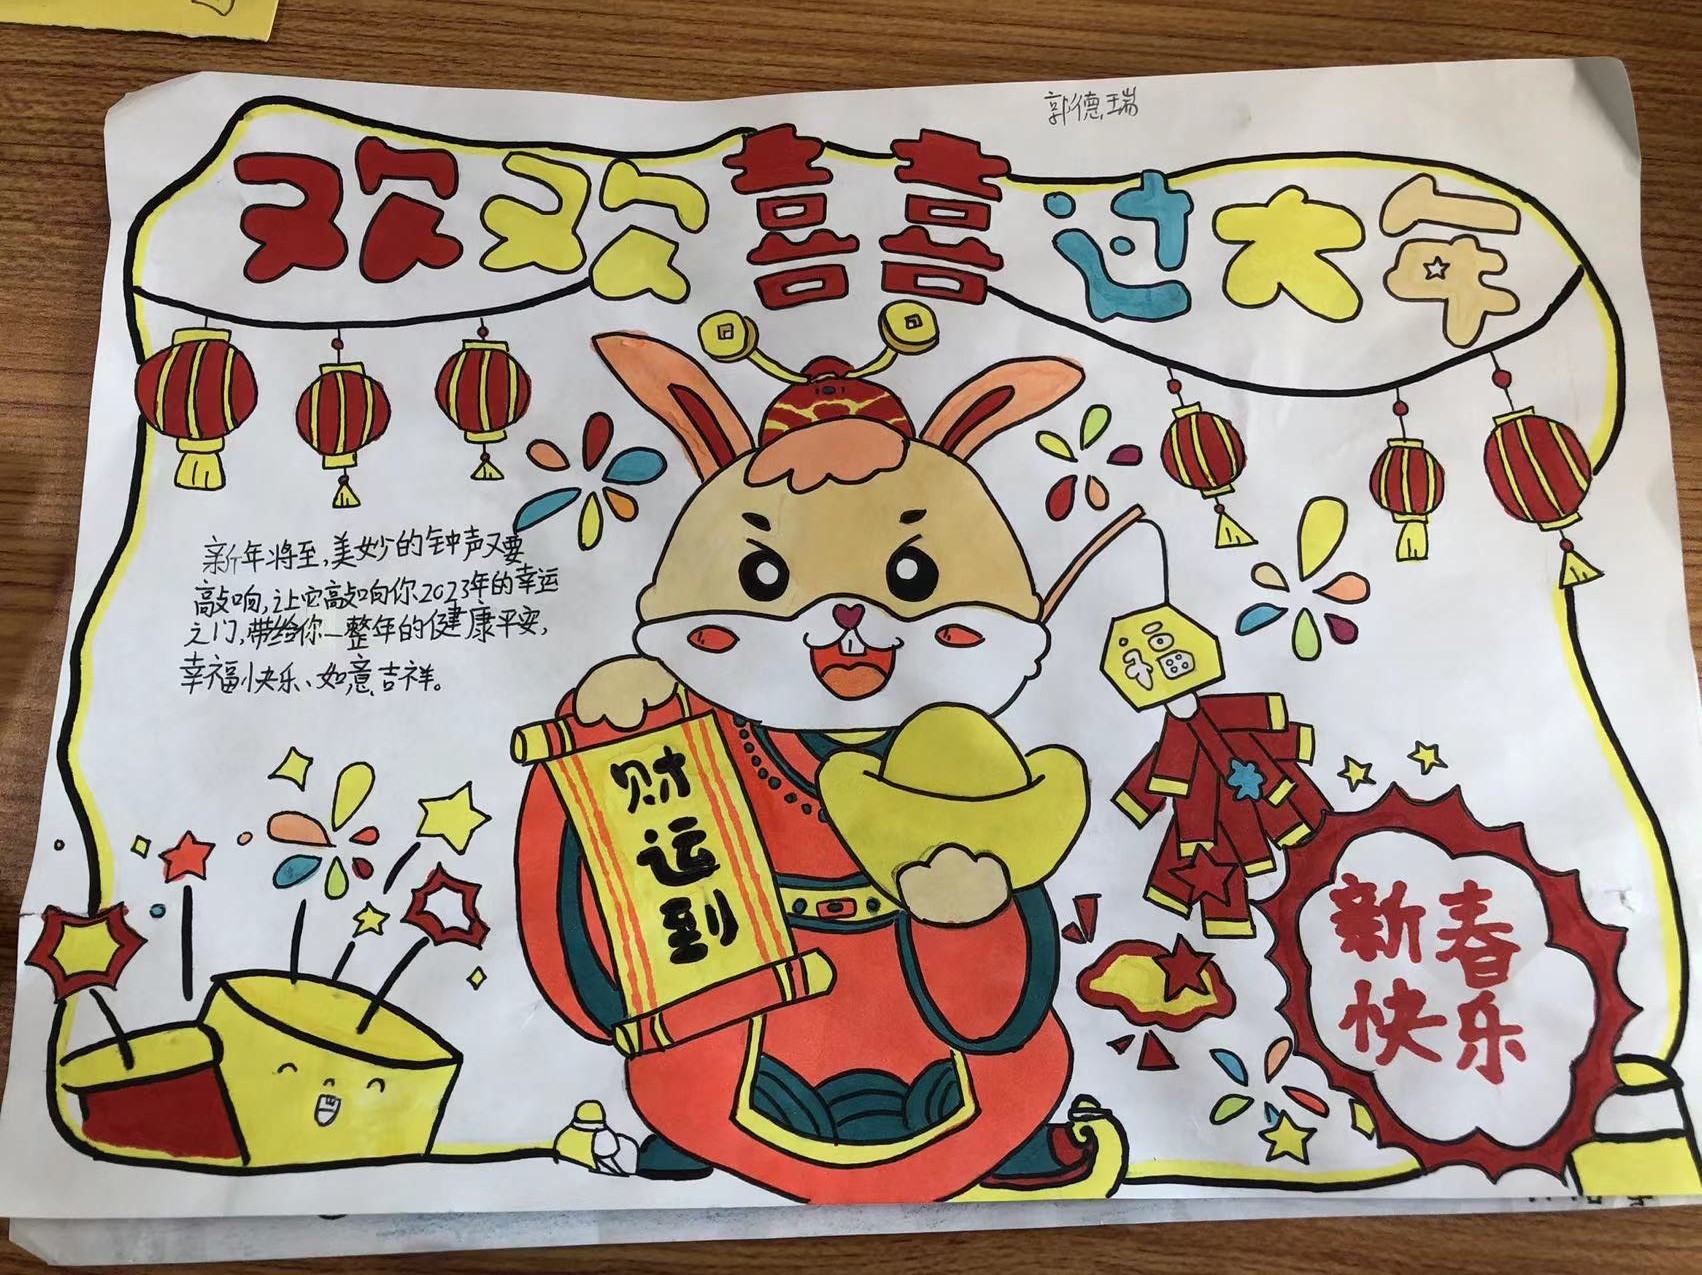 郭德瑞
欢欢囍过大年
新年将至,美妙的钟声又要
敲响,让它敲响你2023年的幸运
之门,带给你一整年的健康平安,
幸福快乐、如意吉祥。
福
财
运
到
新春
快乐